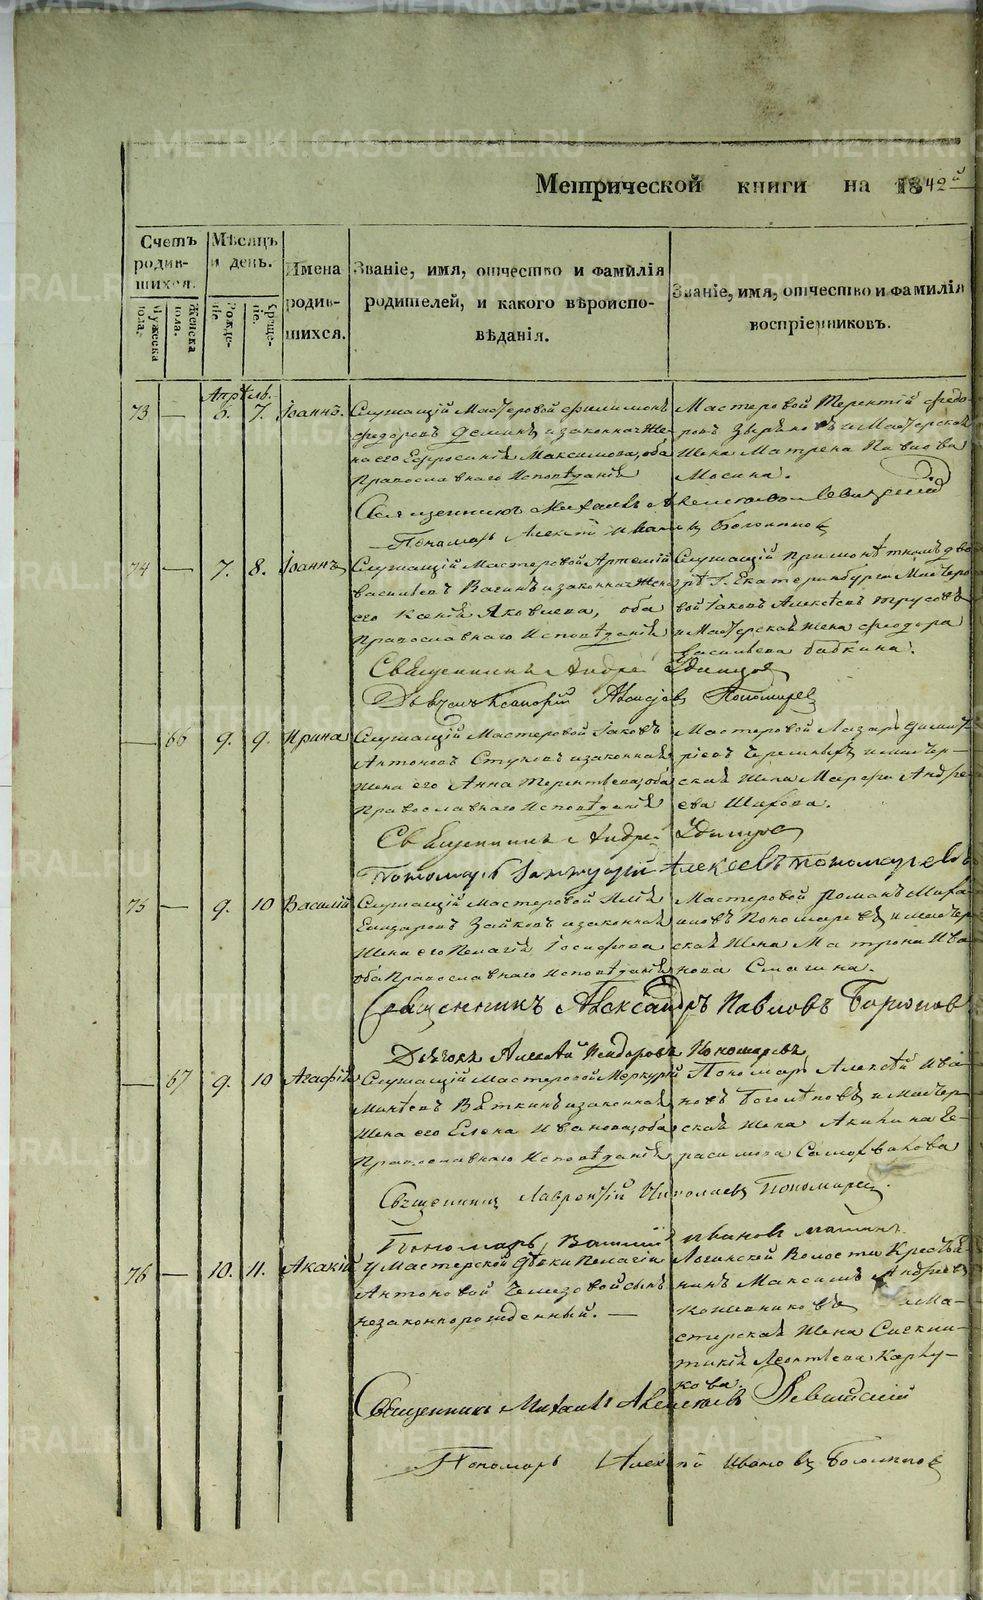 Метрической книги на 1842й
Счетъ родив- шихся.
Мѣсяцъ и день.
Имена родив- шихся.
Званіе, имя, отчество и фамилія родителей, и какого вѣроиспо- вѣданія.
Званіе, имя, отчество и фамилія воспріемниковъ.
Мужеска пола.
Женска пола.
Рожде- ніе.
Креще- ніе.
Апрѣль.
73 — 6. 7. Іоаннъ.
Служащій Мастеровой Филимонъ
Федоровъ Деминъ и законная Же-
на его Ефросинія Максимова, оба
Православнаго Исповѣданія
Мастеровой Терентій Федо-
ровъ и Мастерская
Жена Матрена Павлова
Мосина.
Священникъ Михаилъ Левитскій
Пономарь Алексѣй Ивановъ
74 — 7. 8. Іоаннъ
Служащій Мастеровой Артемій
Васильевъ Вагинъ и законная Жена
его Ксенія Яковлева, оба
Православнаго Исповѣданія
Служащій при монетномъ дво-
рѣ Г. Екатеринбурга Мастеро-
вой Іаковъ Алексѣевъ Трусовъ
и Мастерская жена Феодора
Васильева Бабкина.
Священникъ Андрей
— 66 9. 9. Ирина
Служащій Мастеровой Іаковъ
Антоновъ Стуковъ и законная
Жена его Анна Терентьева, оба
Православнаго Исповѣданія
Мастеровой Лазарь Димит-
ріевъ и мастер-
ская Жена Марфа Андре-
ева Шахова.
Священникъ Андрей
Пономарь Алексѣевъ Пономаревъ
75 — 9. 10 Василій
Служащій Мастеровой Илія
Елизаровъ Зайковъ и законная
Жена его Пелагія Іосифова
оба Православнаго Исповѣданія
Мастеровой Романъ Михаи-
ловъ Пономаревъ и мастер-
ская Жена Матрона Ива-
нова Смагина.
Священникъ Александръ Павловъ
Дьячокъ Алексѣй Пономаревъ
— 67 9. 10 Агафія
Служащій Мастеровой Меркурій
Вяткинъ и законная
Жена его Елена Иванова, оба
Православнаго Исповѣданія
Пономарь Алексѣй Ива-
новъ и мастер-
ская Жена Акилина Ге-
расимова Самохвалова
Священникъ Лаврентій Николаевъ Пономаревъ.
Пономарь Василій Ивановъ
76 — 10. 11. Акакій
У Мастерской дѣвки Пелагіи
Антоновой сынъ
незаконнорожденный. —
Логинской Волости Крестья-
нинъ Максимъ Андреевъ
Кожевниковъ и Ма-
стерская Жена
Леонтьева
кова.
Священникъ Михаилъ Левитскій
Пономарь Алексѣй Ивановъ